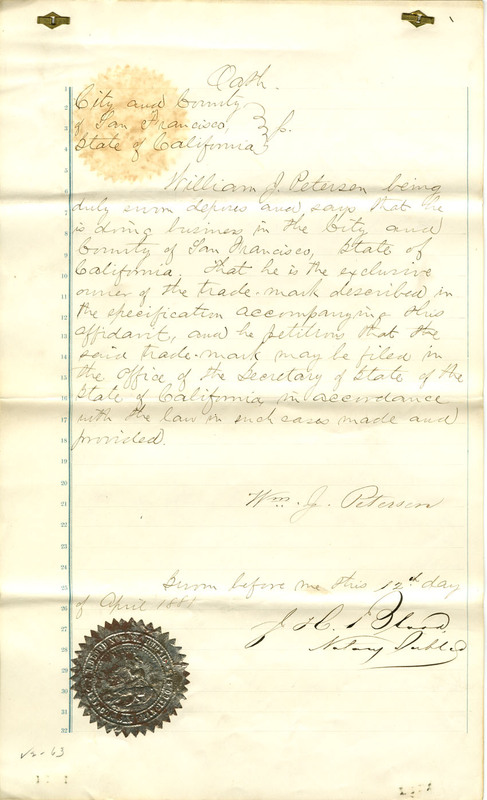 Oath.
City and County
of San Francisco,
State of California
William J. Peterson being
duly sworn deposes and says that he
is doing business in the City and
County of San Francisco, State of
California. That he is the exclusive
owner of the trade-mark described in
the specification accompanying this
affidavit, and he petitions that the
said trade-mark may be filed in
the Office of the Secretary of State of the
State of California in accordance
with the law in such cases made and
provided.
Wm. J. Peterson
Sworn before me this 12th day
of April
J. H. Blood
Notary Public